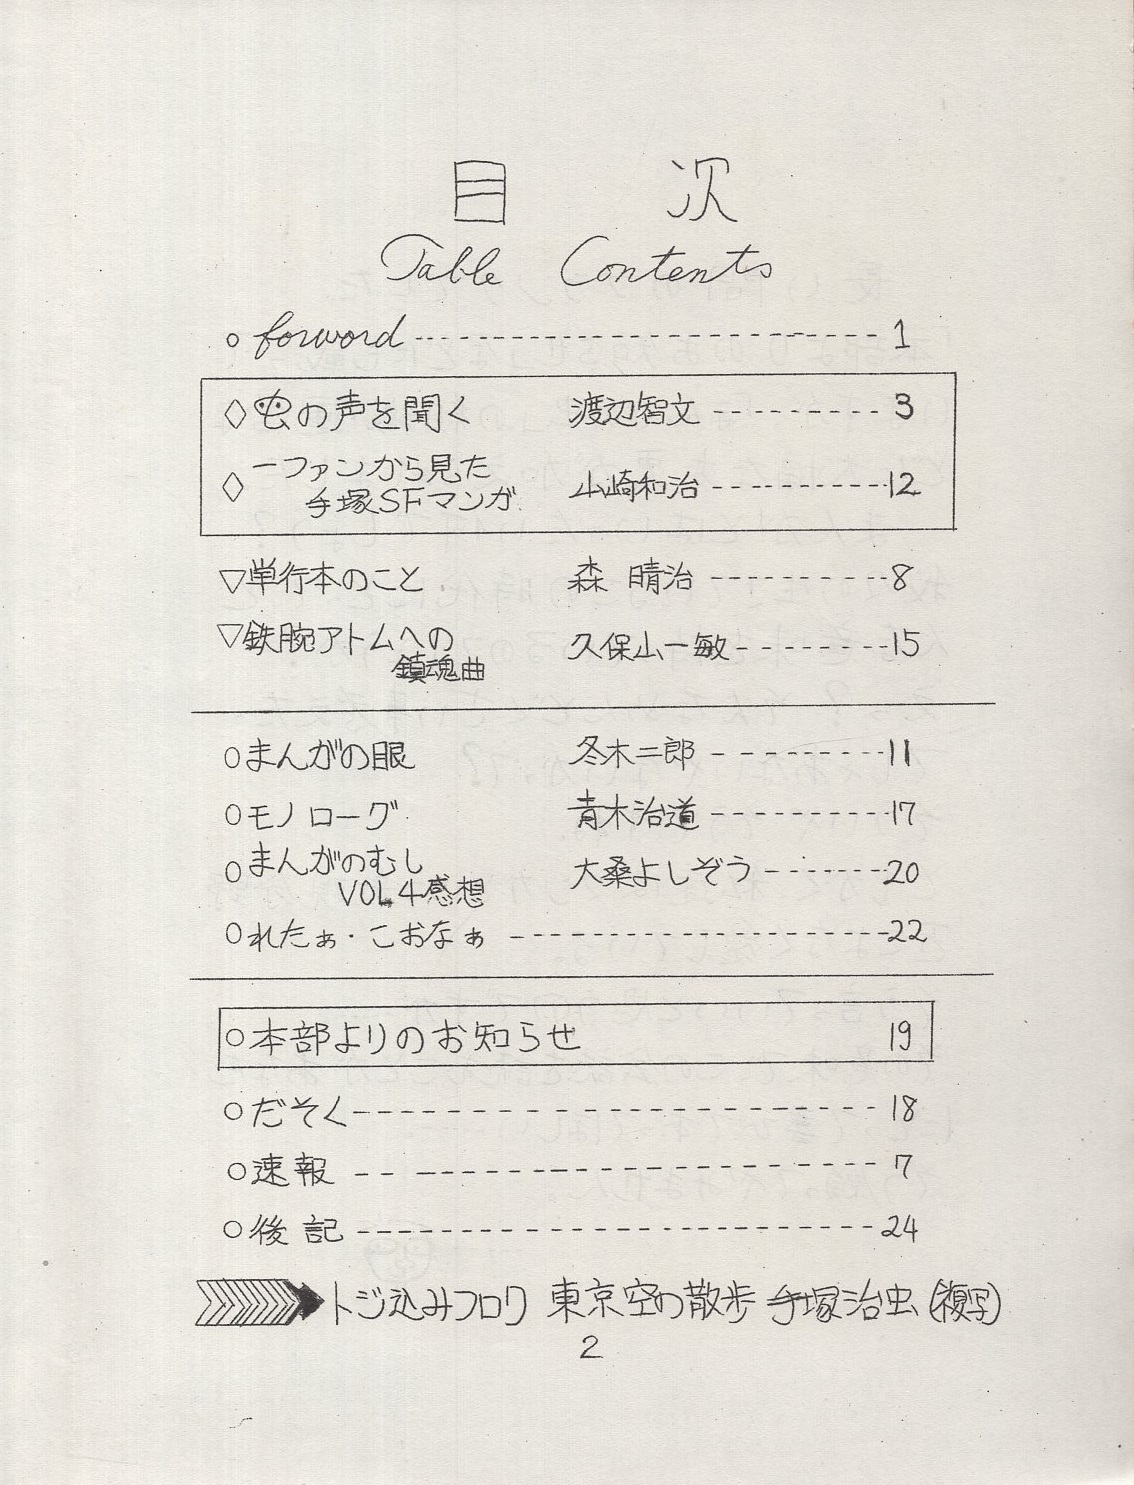 目 次
Table Contents
○ forword ---------- 1
◇ 虫の声を聞く 渡辺智文 ---------- 3
◇ 一ファンから見た
手塚SFマンガ 山崎和治 ---------- 12
▽単行本のこと 森 晴治 ---------- 8
▽鉄腕アトムへの
鎮魂曲 久保山一敏 ---------- 15
○まんがの眼 冬木二郎 ---------- 11
○モノローグ 青木治道 ---------- 17
○まんがのむし
VOL.4感想 大桑よしぞう ---------- 20
○れたぁ・こおなぁ ---------- 22
○本部よりのお知らせ 19
○だそく ---------- 18
○速報 ---------- 7
○後記 ---------- 24
トジ込みフロク 東京空の散歩 手塚治虫(複写)
2